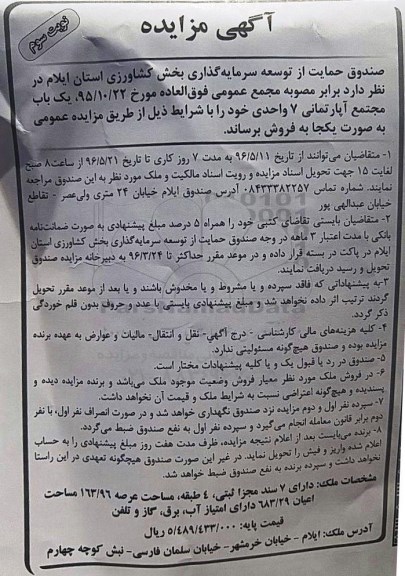 آگهی مزایده
نوبت سوم
صندوق حمایت از توسعه سرمایه‌گذاری بخش کشاورزی استان ایلام در
نظر دارد برابر مصوبه مجمع عمومی فوق‌العاده مورخ ۹۵/۱۰/۲۲، یک باب
مجتمع آپارتمانی ۷ واحدی خود را با شرایط ذیل از طریق مزایده عمومی
به صورت یکجا به فروش برساند.
۱- متقاضیان می‌توانند از تاریخ ۹۶/۵/۱۱ به مدت ۷ روز کاری تا تاریخ ۹۶/۵/۲۱ از ساعت ۸ صبح
لغایت ۱۵ جهت تحویل اسناد مزایده و رویت اسناد مالکیت و ملک مورد نظر به این صندوق مراجعه
نمایند. شماره تماس ۰۸۴۳۳۳۸۲۲۵۷ آدرس صندوق ایلام خیابان ۲۴ متری ولی‌عصر - تقاطع
خیابان عبدالهی پور
۲- متقاضیان بایستی تقاضای کتبی خود را همراه ۵ درصد مبلغ پیشنهادی به صورت ضمانت‌نامه
بانکی با مدت اعتبار ۳ ماهه در وجه صندوق حمایت از توسعه سرمایه‌گذاری بخش کشاورزی استان
ایلام در پاکت در بسته قرار داده و در موعد مقرر حداکثر تا ۹۶/۳/۲۴ به دبیرخانه مزایده صندوق
تحویل و رسید دریافت نمایند.
۳- به پیشنهاداتی که فاقد سپرده و یا مشروط و یا مخدوش باشند و یا بعد از موعد مقرر تحویل
گردند ترتیب اثر داده نخواهد شد و مبلغ پیشنهادی بایستی با عدد و حروف بدون قلم خوردگی
ذکر گردد.
۴- کلیه هزینه‌های مالی کارشناسی - درج آگهی- نقل و انتقال- مالیات و عوارض به عهده برنده
مزایده بوده و صندوق هیچ‌گونه مسئولیتی ندارد.
۵- صندوق در رد یا قبول یک و یا کلیه پیشنهادات مختار است.
۶- در فروش ملک مورد نظر معیار فروش وضعیت موجود ملک می‌باشد و برنده مزایده دیده و
پسندیده و هیچ‌گونه اعتراضی نسبت به شرایط ملک و قیمت آن نخواهد داشت.
۷- سپرده نفر اول و دوم مزایده نزد صندوق نگهداری خواهد شد و در صورت انصراف نفر اول، با نفر
دوم برابر قانون معامله انجام می‌گیرد و سپرده نفر اول به نفع صندوق ضبط می‌گردد.
۸- برنده می‌بایست بعد از اعلام نتیجه مزایده، ظرف مدت هفت روز مبلغ پیشنهادی را به حساب
اعلام شده واریز و فیش را تحویل نماید. در غیر این صورت صندوق هیچگونه تعهدی در این راستا
نخواهد داشت و سپرده برنده به نفع صندوق ضبط خواهد شد.
مشخصات ملک: دارای ۷ سند مجزا ثبتی، ۴ طبقه، مساحت عرصه ۱۶۳/۹۶ مساحت
اعیان ۶۸۳/۲۹ دارای امتیاز آب، برق، گاز و تلفن
قیمت پایه: ۵/۴۸۹/۴۳۳/۰۰۰ ریال
آدرس ملک: ایلام - خیابان خرمشهر- خیابان سلمان فارسی- نبش کوچه چهارم